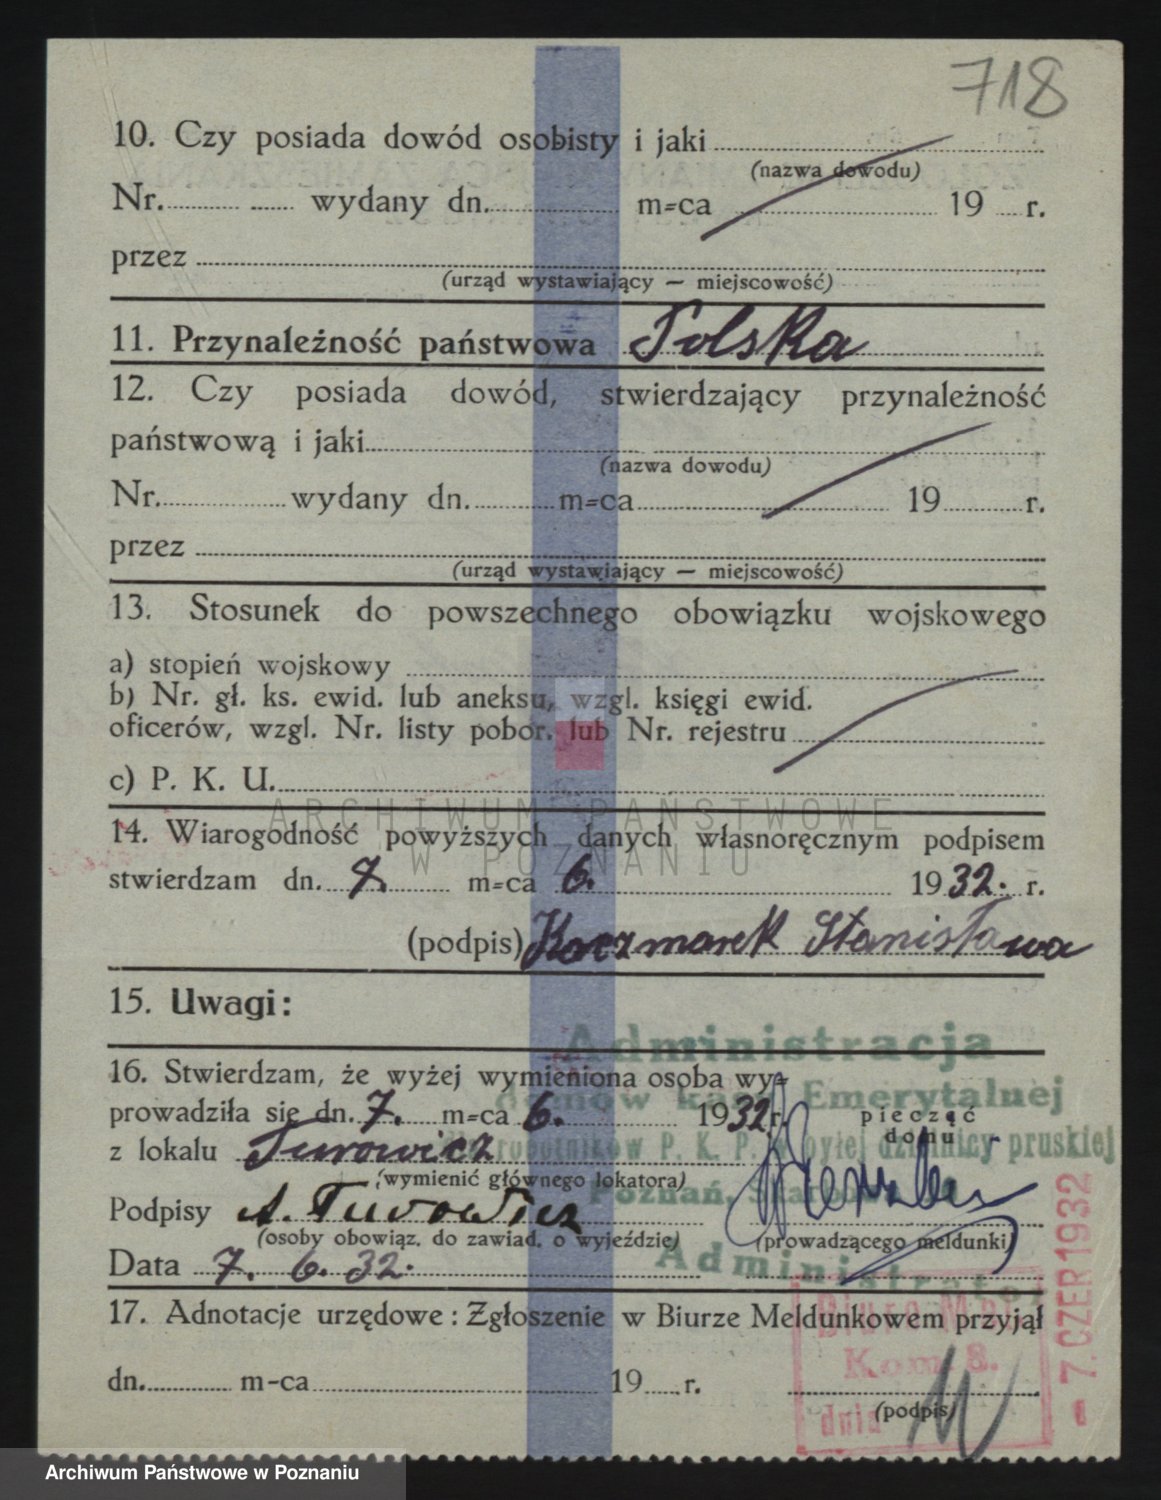 718
10. Czy posiada dowód osobisty i jaki
(nazwa dowodu)
Nr. wydany dn. m-ca 19 r.
przez
(urząd wystawiający — miejscowość)
11. Przynależność państwowa Polska
12. Czy posiada dowód, stwierdzający przynależność
państwową i jaki
(nazwa dowodu)
Nr. wydany dn. m-ca 19 r.
przez
(urząd wystawiający — miejscowość)
13. Stosunek do powszechnego obowiązku wojskowego
a) stopień wojskowy
b) Nr. gł. ks. ewid. lub aneksu, wzgl. księgi ewid.
oficerów, wzgl. Nr. listy pobor. lub Nr. rejestru
c) P. K. U.
ARCHIWUM PAŃSTWOWE
W POZNANIU
14. Wiarogodność powyższych danych własnoręcznym podpisem
stwierdzam dn. 7. m-ca 6. 1932. r.
(podpis) Kaczmarek Stanisława
15. Uwagi:
Administracja
16. Stwierdzam, że wyżej wymieniona osoba wy-
domów kasy Emerytalnej
prowadziła się dn. 7. m-ca 6. 1932 r. pieczęć
domu
robotników P. K. P. w byłej dzielnicy pruskiej
z lokalu Turowicz
(wymienić głównego lokatora)
Poznań,
Podpisy A. Turowicz
(osoby obowiąz. do zawiad. o wyjeździe) (prowadzącego meldunki)
Administrator
Data 7. 6. 32.
17. Adnotacje urzędowe: Zgłoszenie w Biurze Meldunkowem przyjął
Biuro Mel.
Kom. 8.
dnia
- 7. CZER 1932
dn. m-ca 19 r.
(podpis)
Archiwum Państwowe w Poznaniu